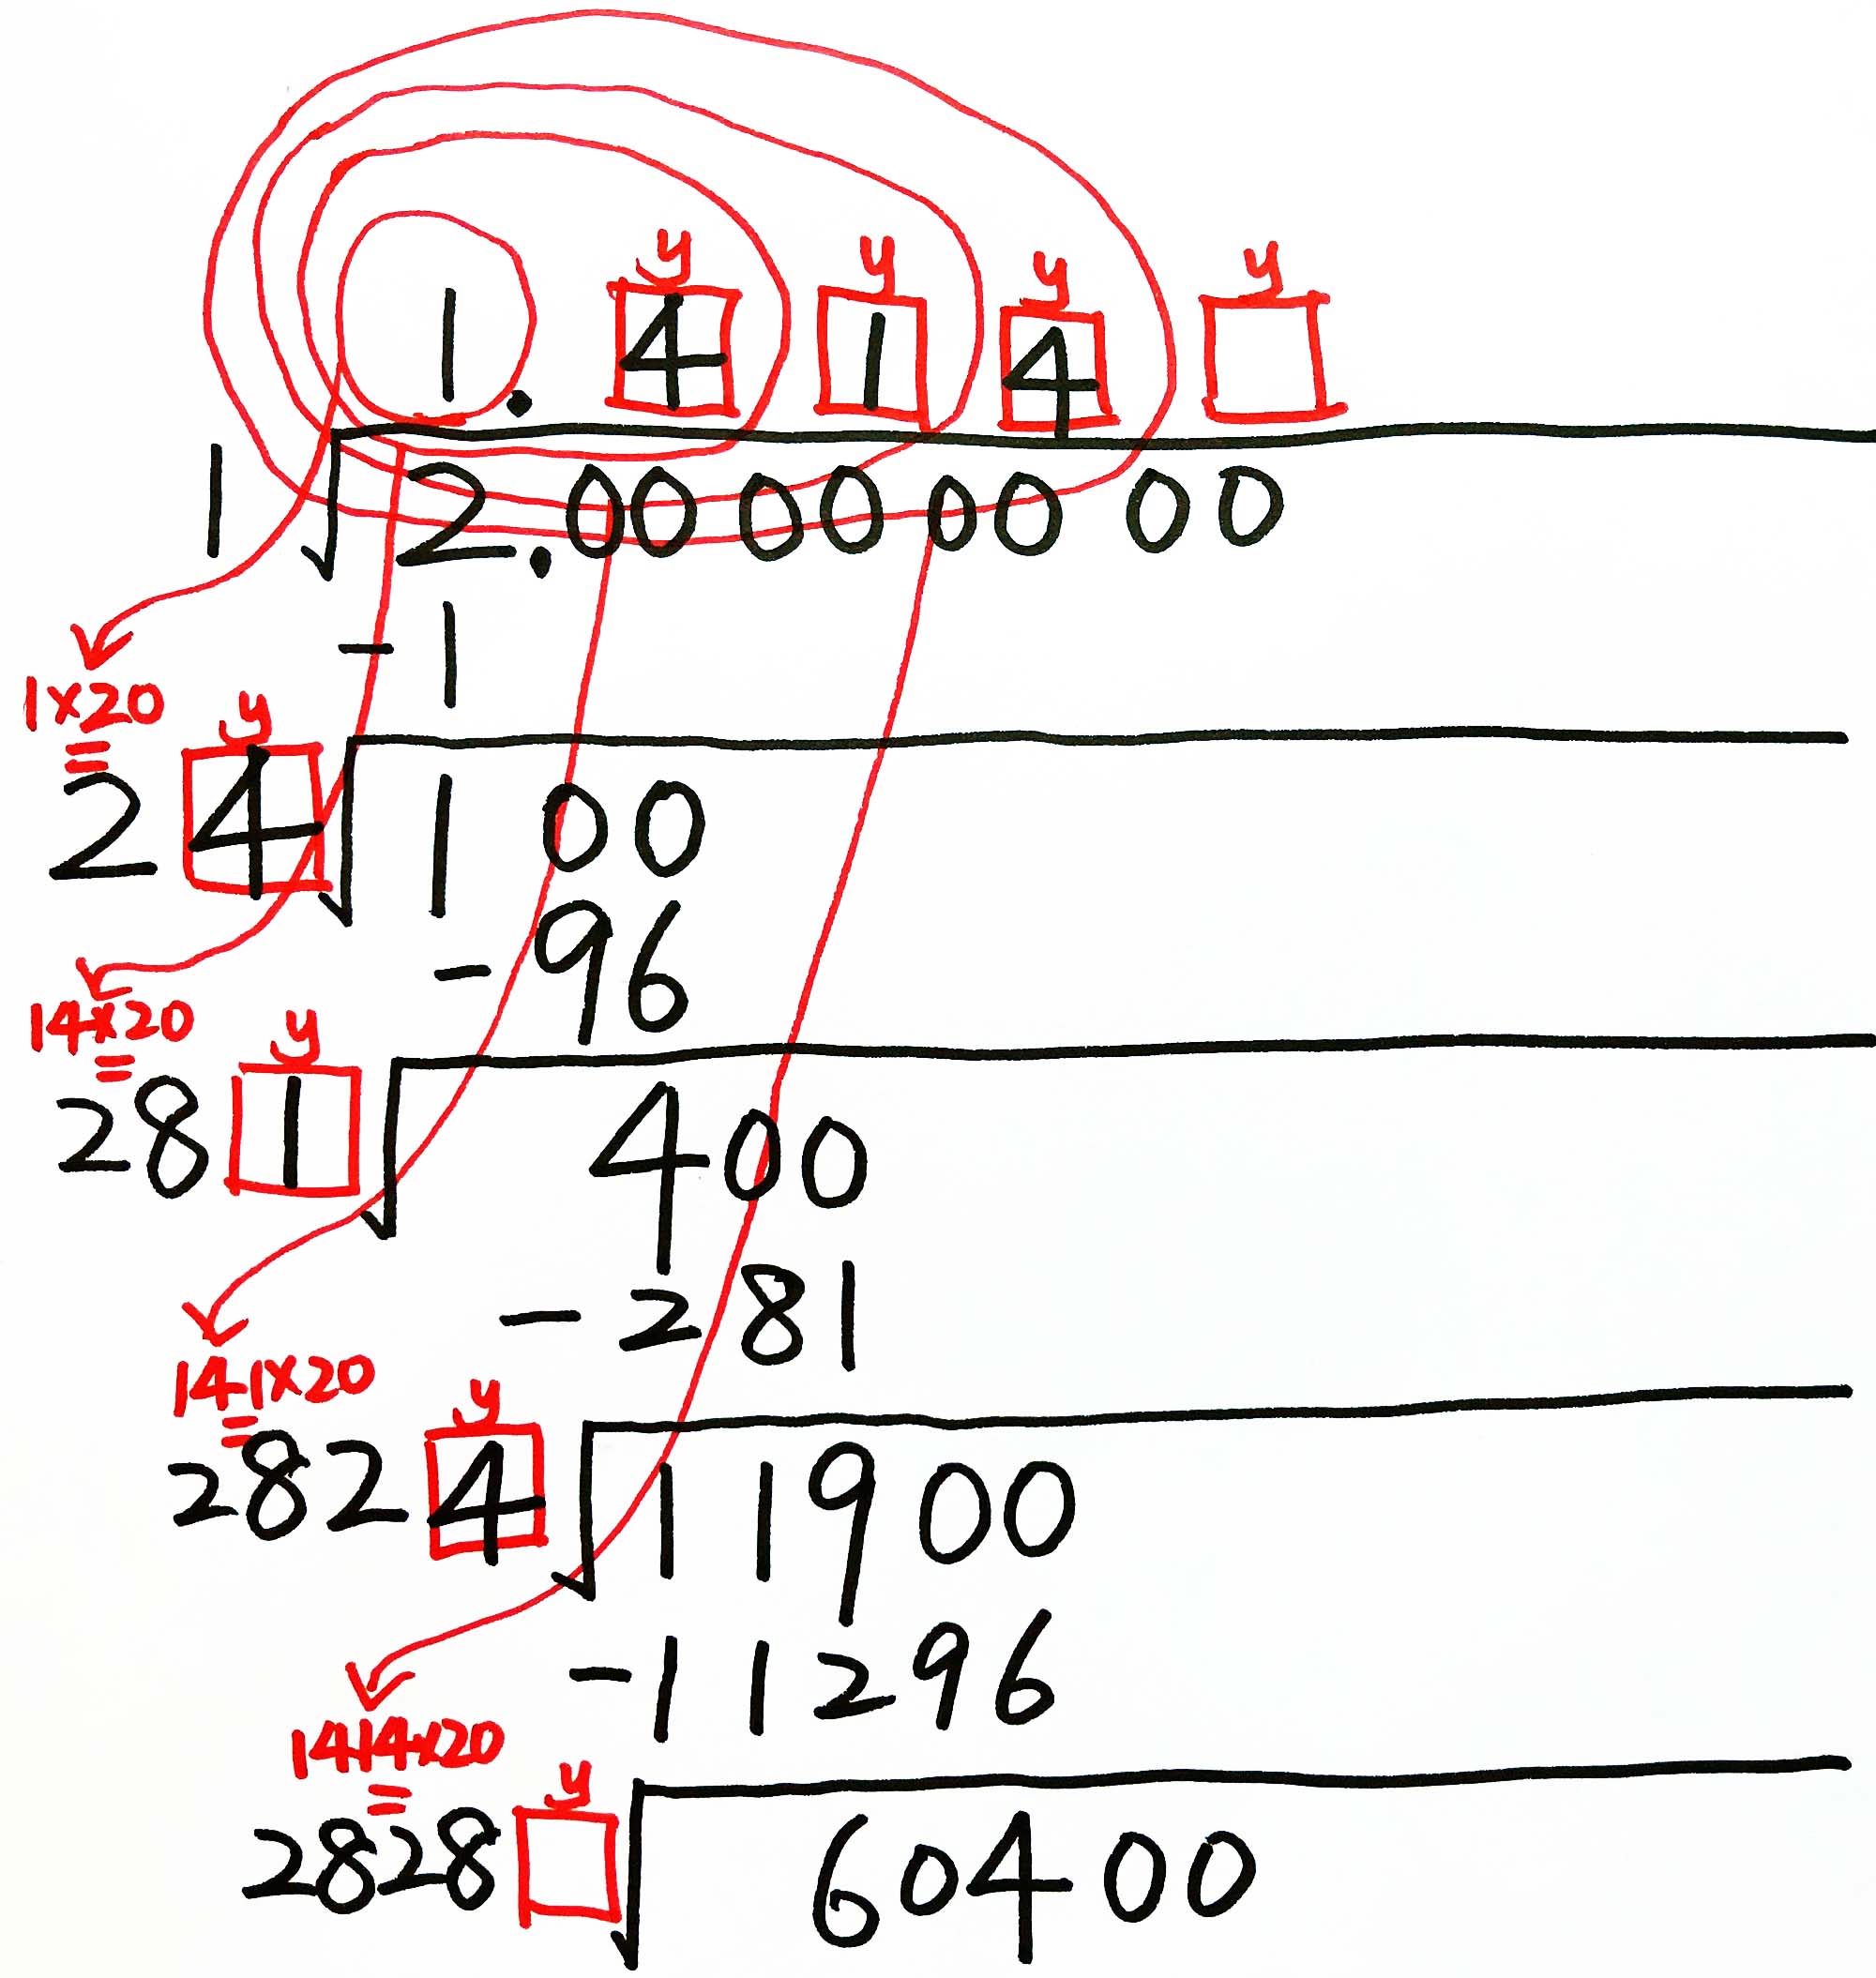 y y y y
1. 4 1 4
1 √2.00 00 00 00
- 1
1×20
= y
2 4 √1 00
- 96
14×20
= y
28 1 √400
- 281
141×20
= y
282 4 √11900
-11296
1414×20
= y
2828 √60400